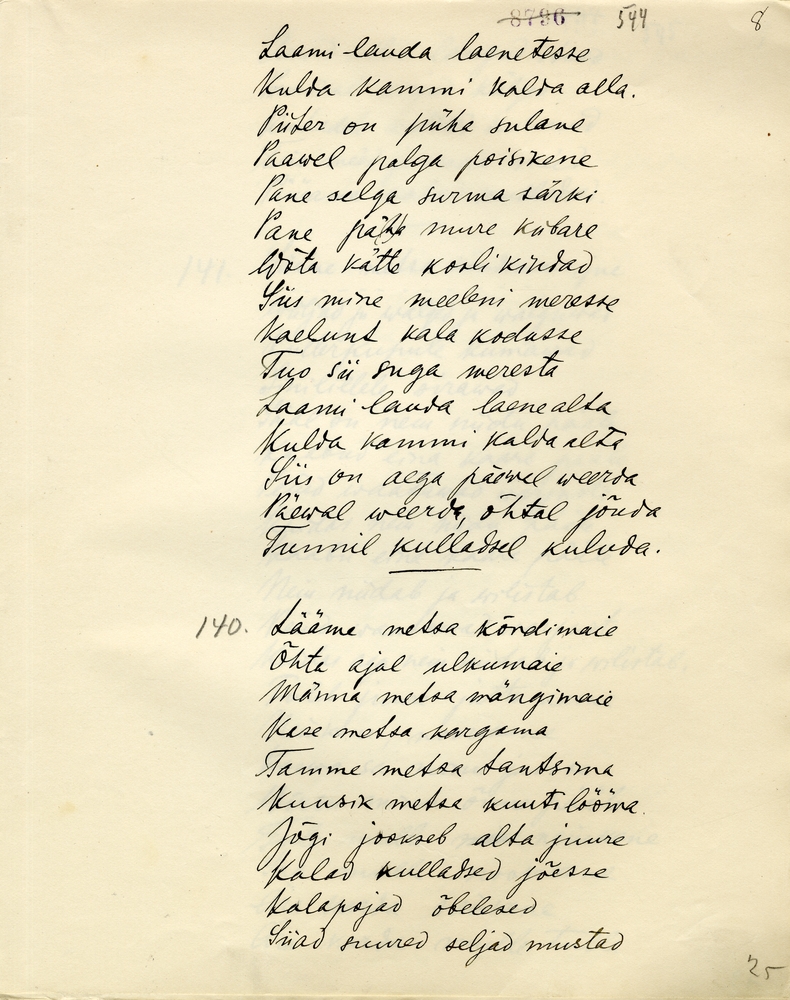 8796 544 8
Laami lauda laenetesse
Kulda kammi kalda alla.
Piiter on püha sulane
Paawel palga poisikene
Pane selga surma särki
Pane pähä mure kübare
Wõta kätte kooli kindad
Siis mine meeleni meresse
Kaelunt kala kodusse
Tuo sii suga meresta
Laami lauda laenealta
Kulda kammi kalda alta
Siis on aega päewel weerda
Päewal weerda, õhtal jõuda
Tunnil kulladsel kuluda.
140. Lääme metsa kõndimaie
Õhta ajal ulkumaie
Männa metsa mängimaie
Kase metsa kargama
Tamme metsa tantsima
Kuusik metsa kuutilööma.
Jõgi jookseb alta juure
Kalad kulladsed jõesse
Kalapojad õbelesed
Siiad suured seljad mustad
25